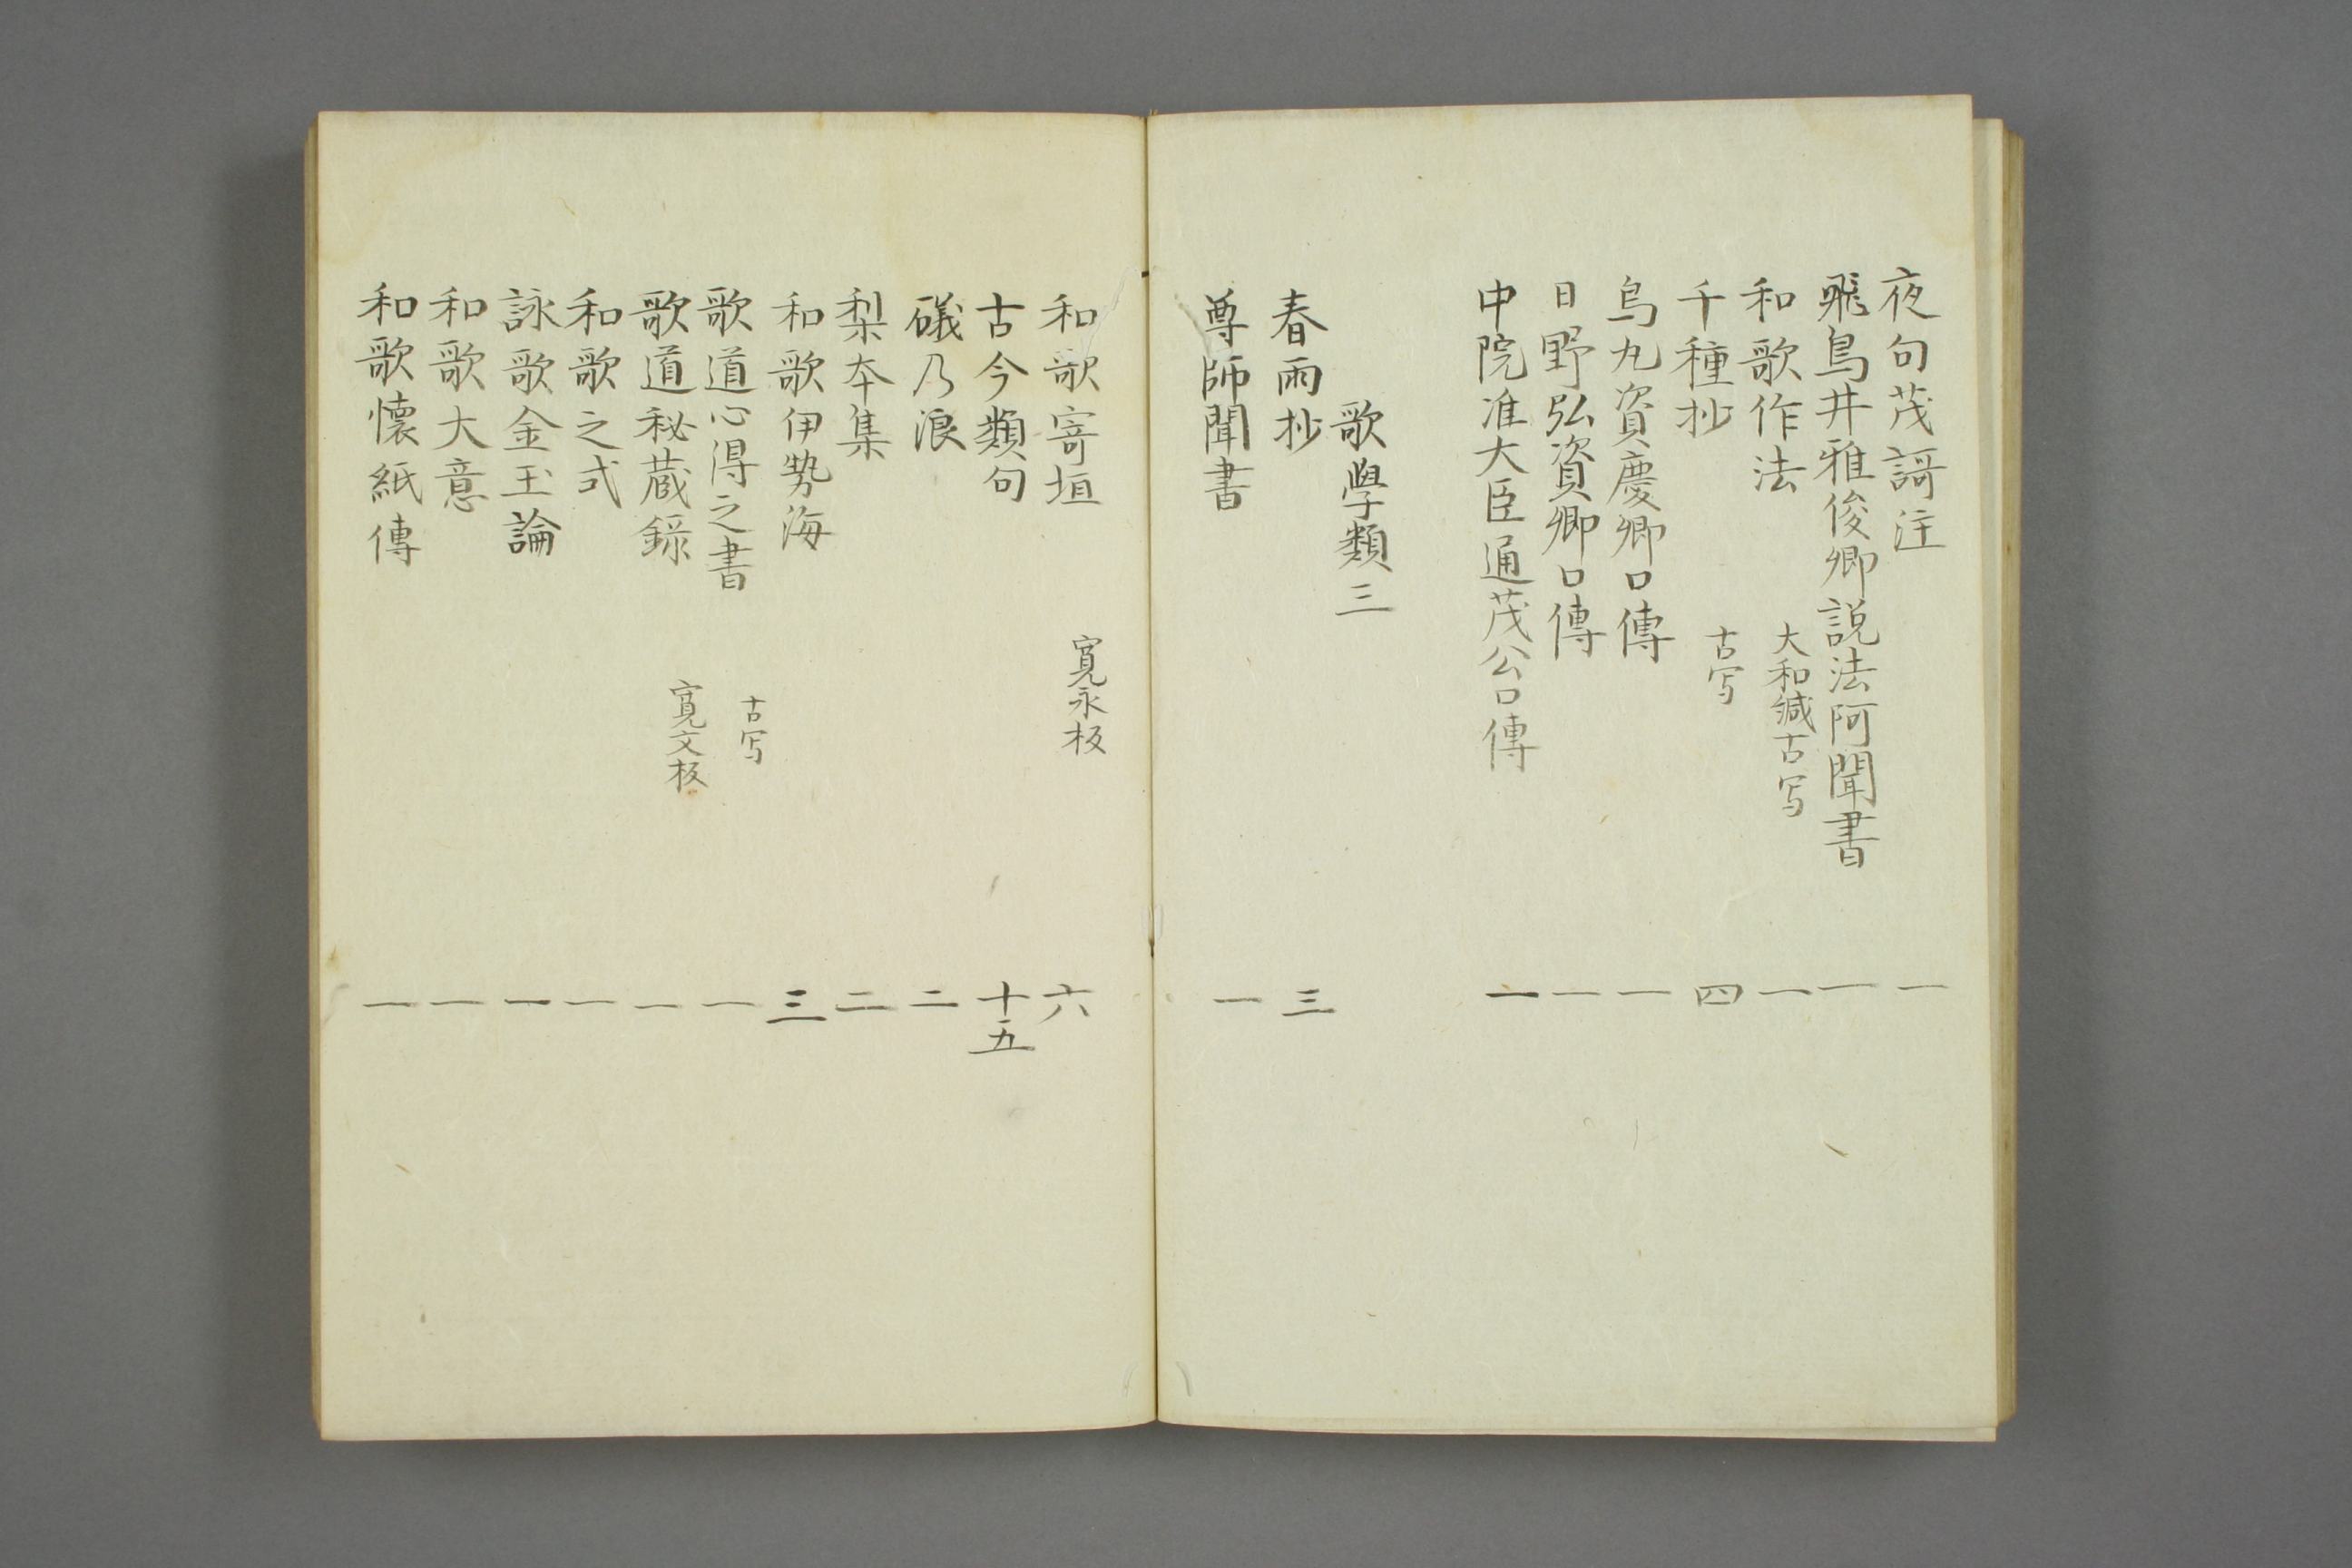 夜句茂謌注 一
飛鳥井雅俊卿説法阿聞書 一
和歌作法 大和緘古写 一
千種抄 古写 四
烏丸資慶卿口傳 一
日野弘資卿口傳 一
中院准大臣通茂公口傳 一
歌學類三
春雨抄 三
尊師聞書 一
和歌寄垣 寛永板 六
古今類句 十五
礒乃浪 二
梨本集 二
和歌伊勢海 三
歌道心得之書 古写 一
歌道秘蔵録 寛文板 一
和歌之式 一
詠歌金玉論 一
和歌大意 一
和歌懐紙傳 一